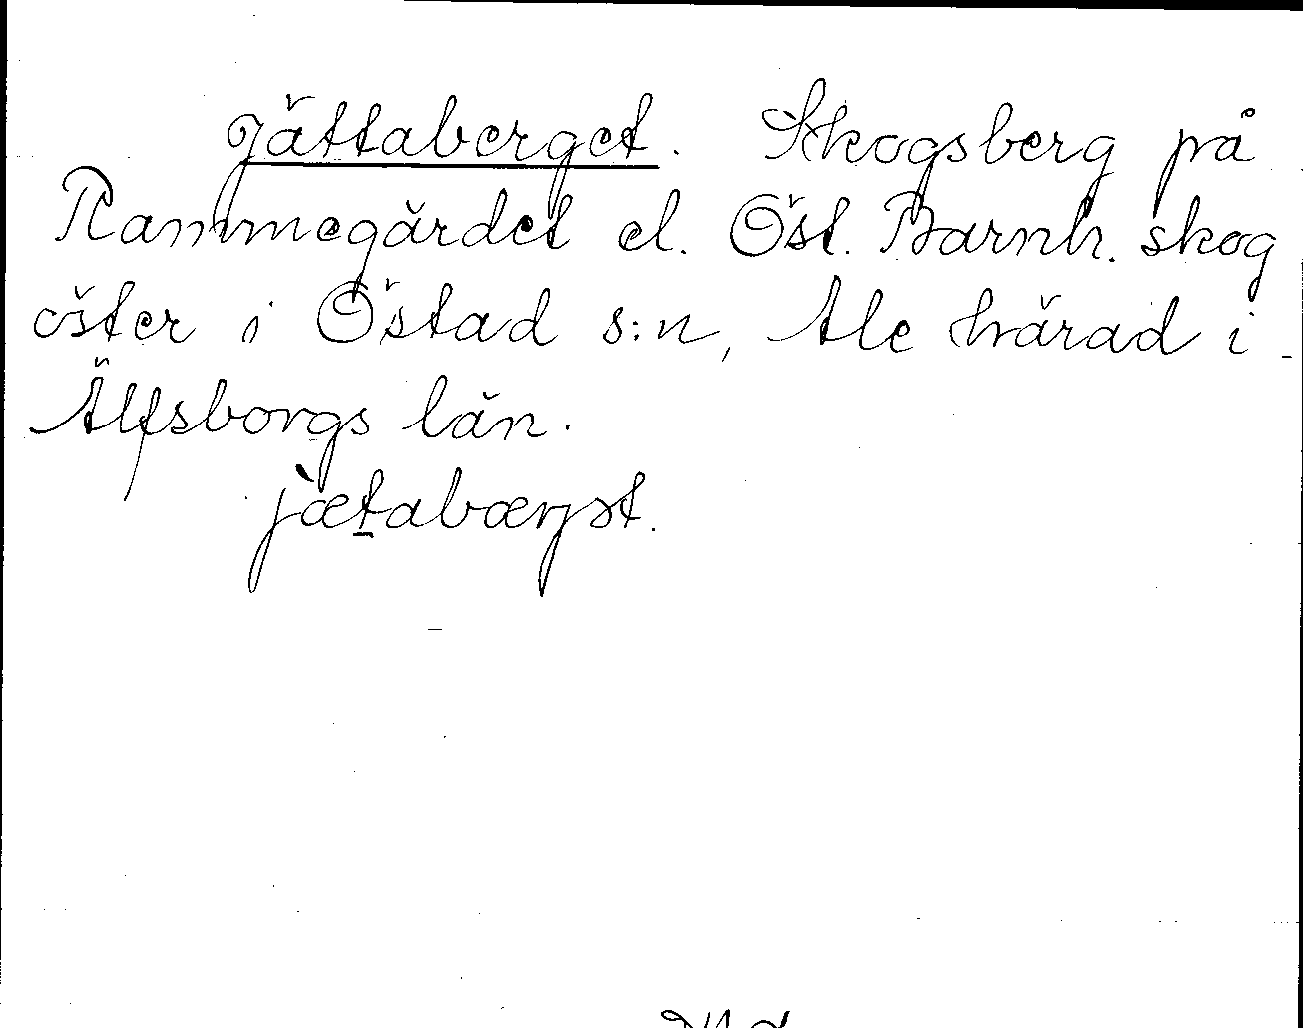 Jättaberget. Skogsberg på
Rammegärdet el. Öst. Barnh. skog
öster i Östad s:n, Ale härad i
Älfsborgs län.
jætabærjət.